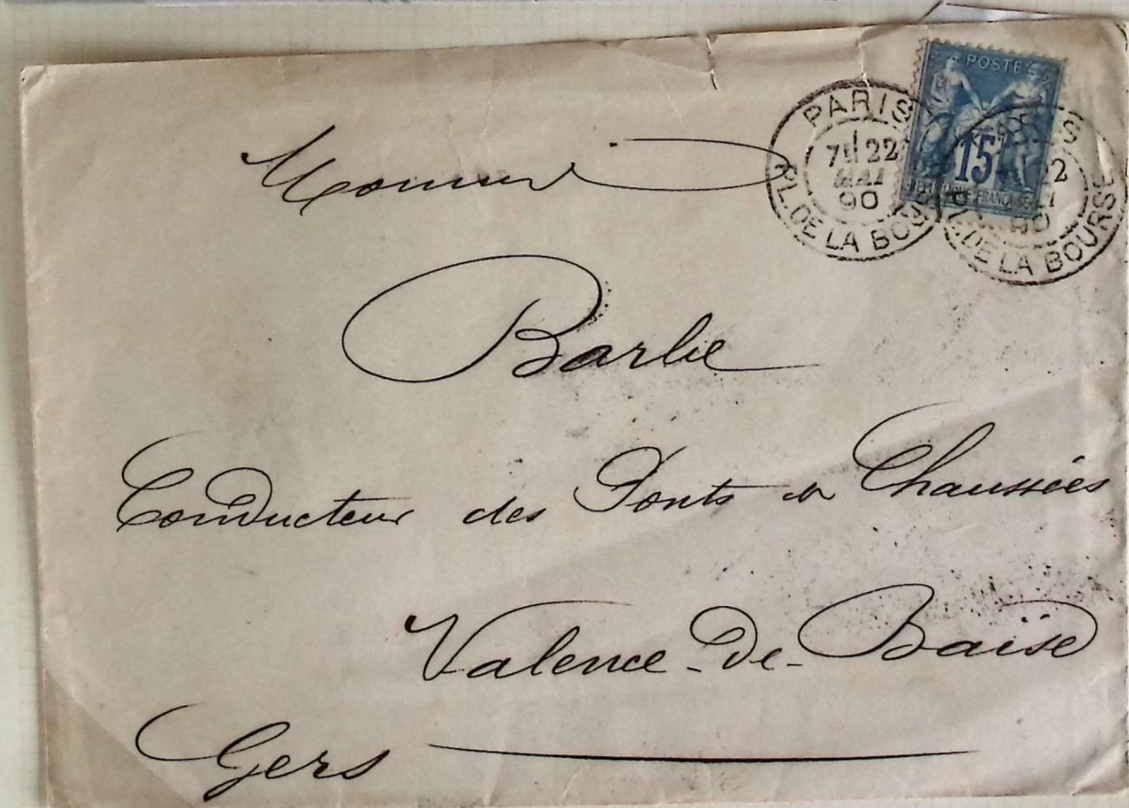 POSTES
15
REPUBLIQUE FRANCAISE
PARIS
7E 22
MAI
90
PL. DE LA BOURSE
PARIS
22
90
PL. DE LA BOURSE
Monsieur
Barbe
Conducteur des Ponts et Chaussées
Valence-De-Baïse
Gers